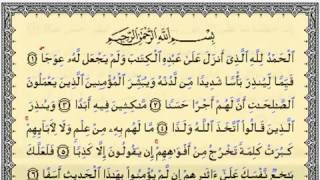 بِسْمِ اللَّهِ الرَّحْمَٰنِ الرَّحِيمِ
الْحَمْدُ لِلَّهِ الَّذِي أَنزَلَ عَلَىٰ عَبْدِهِ الْكِتَابَ وَلَمْ يَجْعَل لَّهُ عِوَجًا ۜ ﴿١﴾
قَيِّمًا لِّيُنذِرَ بَأْسًا شَدِيدًا مِّن لَّدُنْهُ وَيُبَشِّرَ الْمُؤْمِنِينَ الَّذِينَ يَعْمَلُونَ
الصَّالِحَاتِ أَنَّ لَهُمْ أَجْرًا حَسَنًا ﴿٢﴾ مَّاكِثِينَ فِيهِ أَبَدًا ﴿٣﴾ وَيُنذِرَ
الَّذِينَ قَالُوا اتَّخَذَ اللَّهُ وَلَدًا ﴿٤﴾ مَّا لَهُم بِهِ مِنْ عِلْمٍ وَلَا لِآبَائِهِمْ
كَبُرَتْ كَلِمَةً تَخْرُجُ مِنْ أَفْوَاهِهِمْ إِن يَقُولُونَ إِلَّا كَذِبًا ﴿٥﴾ فَلَعَلَّكَ
بَاخِعٌ نَّفْسَكَ عَلَىٰ آثَارِهِمْ إِن لَّمْ يُؤْمِنُوا بِهَٰذَا الْحَدِيثِ أَسَفًا ﴿٦﴾